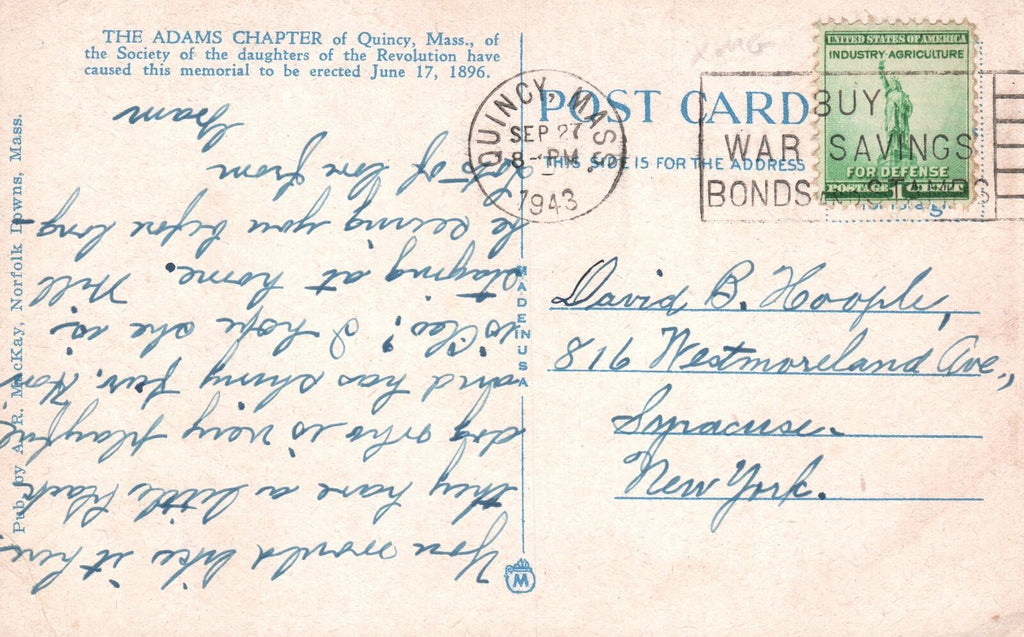 THE ADAMS CHAPTER of Quincy, Mass., of
the Society of the daughters of the Revolution have
caused this memorial to be erected June 17, 1896.
POST CARD
THIS SIDE IS FOR THE ADDRESS
QUINCY, MASS.
SEP 27
8-PM
1943
BUY
WAR SAVINGS
BONDS
UNITED STATES OF AMERICA
INDUSTRY·AGRICULTURE
FOR DEFENSE
POSTAGE 1 CENT
David B. Hoople,
816 Westmoreland Ave.,
Syracuse.
New York.
You would like it here
they have a little black
dog who is very playful
and has shiny fur. How
is Cleo? I hope she is
staying at home. Will
be seeing you before long -
Lots of love from
Gram
Pub. by A. R. MacKay, Norfolk Downs, Mass.
MADE IN USA
M